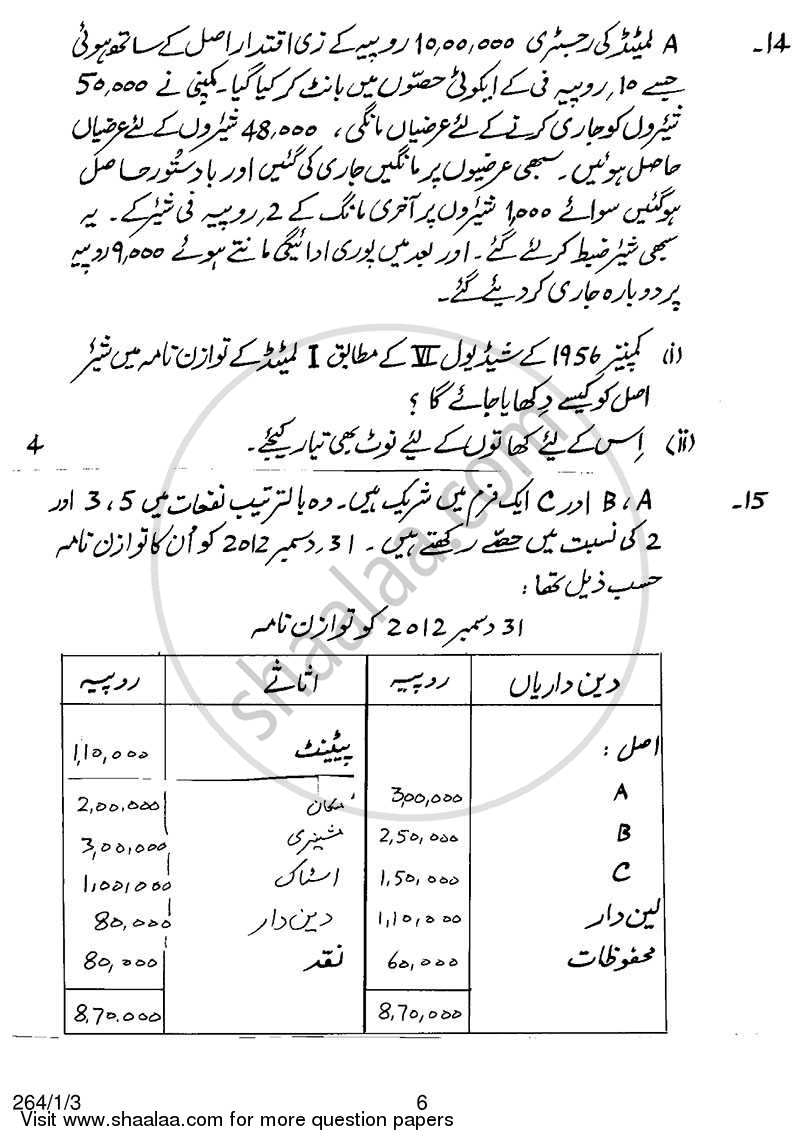 14۔ A لمیٹڈ کی رجسٹری 10,00,000 روپیہ کے زی اقتدار اصل کے ساتھ ہوئی
جسے 10 روپیہ فی کے ایکوٹی حصّوں میں بانٹ کر کیا گیا۔ کمپنی نے 50,000
شیئروں کو جاری کرنے کے لئے عرضیاں مانگی، 48,000 شیئروں کے لئے عرضیاں
حاصل ہوئیں۔ سبھی عرضیوں پر مانگیں جاری کی گئیں اور با دستُور حاصل
ہوگئیں سوائے 1,000 شیئروں پر آخری مانگ کے 2 روپیہ فی شیئر کے۔ یہ
سبھی شیئر ضبط کر لئے گئے۔ اور بعد میں پوری ادائیگی مانتے ہوئے 9,000 روپیہ
پر دوبارہ جاری کر دیئے گئے۔
(i) کمپنیز 1956 کے شیڈیول VI کے مطابق I لمیٹڈ کے توازن نامہ میں شیئر
اصل کو کیسے دِکھایا جائے گا؟
(ii) اِس کے لیئے کھاتوں کے لیئے نوٹ بھی تیار کیجئے۔ 4
15۔ A، B اور C ایک فرم میں شریک ہیں۔ وہ بالترتیب نفعات میں 5، 3 اور
2 کی نسبت میں حصّے رکھتے ہیں۔ 31 دسمبر 2012 کو اُن کا توازن نامہ
حسب ذیل تھا:
31 دسمبر 2012 کو توازن نامہ
دین داریاں روپیہ اثاثے روپیہ
اصل: پیٹینٹ 1,10,000
A 3,00,000 مکان 2,00,000
B 2,50,000 مشینری 3,00,000
C 1,50,000 اسٹاک 1,00,000
لین دار 1,10,000 دین دار 80,000
محفوظات 60,000 نقد 80,000
8,70,000 8,70,000
shaalaa.com
264/1/3 6
Visit www.shaalaa.com for more question papers